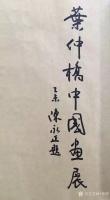 葉仲橋中國畫展
乙亥 陳永正題